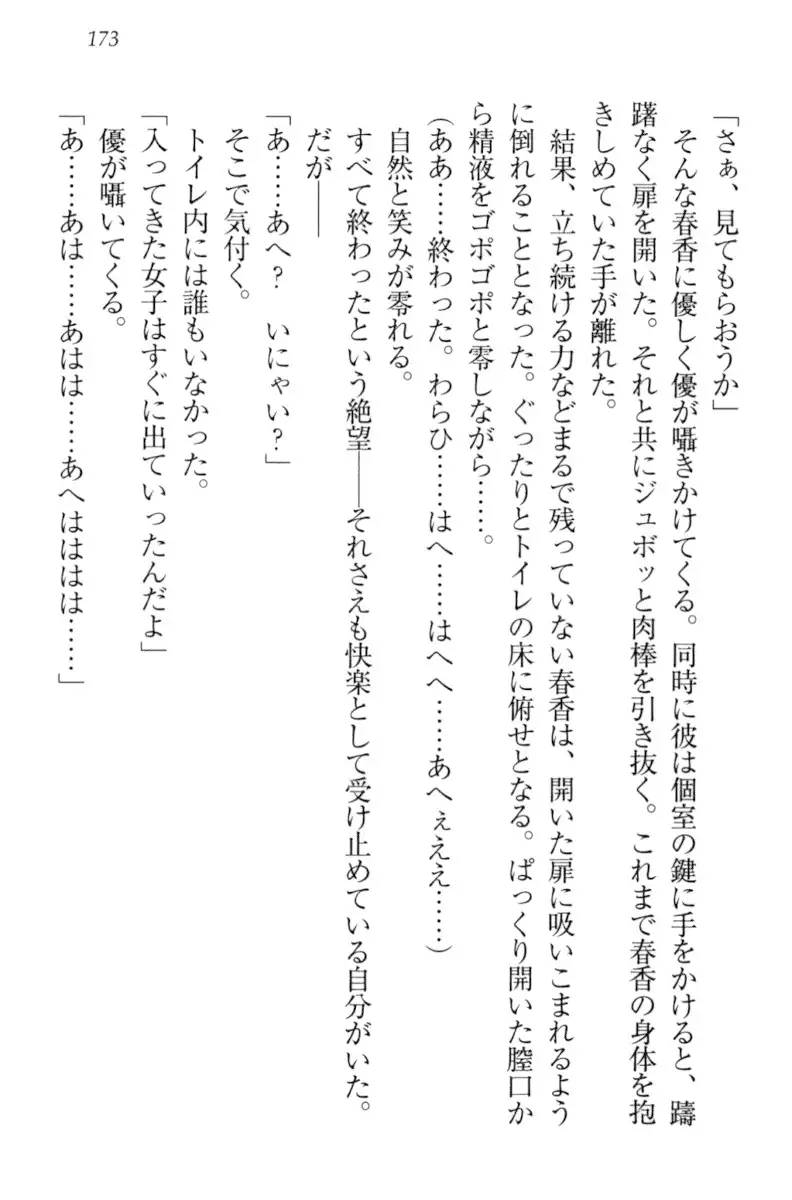 173
「さぁ、見てもらおうか」
　そんな春香に優しく優が囁きかけてくる。同時に彼は個室の鍵に手をかけると、躊
躇なく扉を開いた。それと共にジュボッと肉棒を引き抜く。これまで春香の身体を抱
きしめていた手が離れた。
　結果、立ち続ける力などまるで残っていない春香は、開いた扉に吸いこまれるよう
に倒れることとなった。ぐったりとトイレの床に俯せとなる。ぱっくり開いた膣口か
ら精液をゴポゴポと零しながら……。
（ああ……終わった。わらひ……はへ……はへへ……あへぇええ……）
　自然と笑みが零れる。
　すべて終わったという絶望――それさえも快楽として受け止めている自分がいた。
　だが――
「あ……あへ？　いにゃい？」
　そこで気付く。
　トイレ内には誰もいなかった。
「入ってきた女子はすぐに出ていったんだよ」
　優が囁いてくる。
「あ……あは……あはは……あへはははは……」